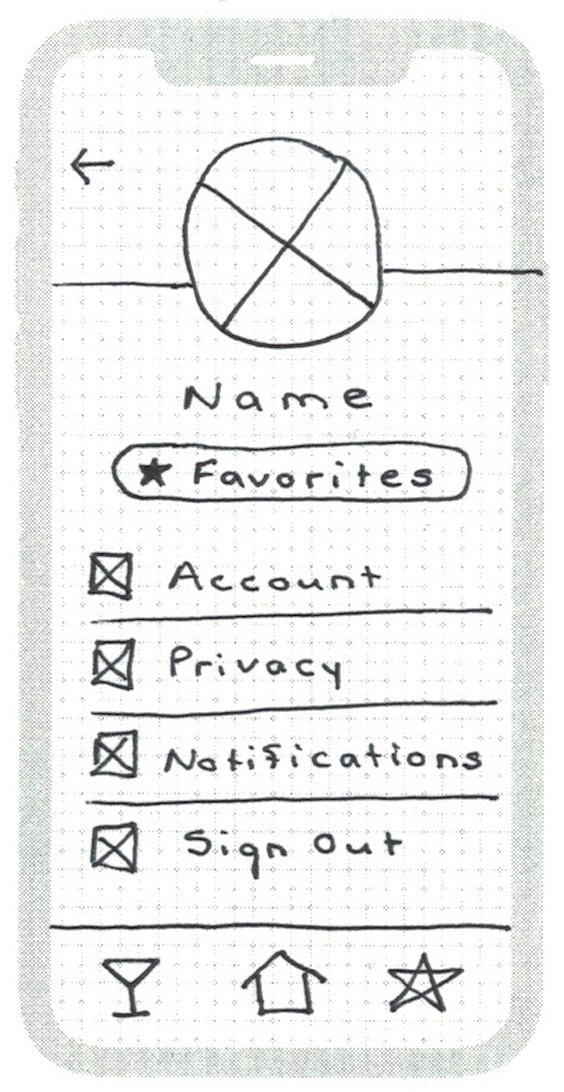 Name
★ Favorites
Account
Privacy
Notifications
Sign Out